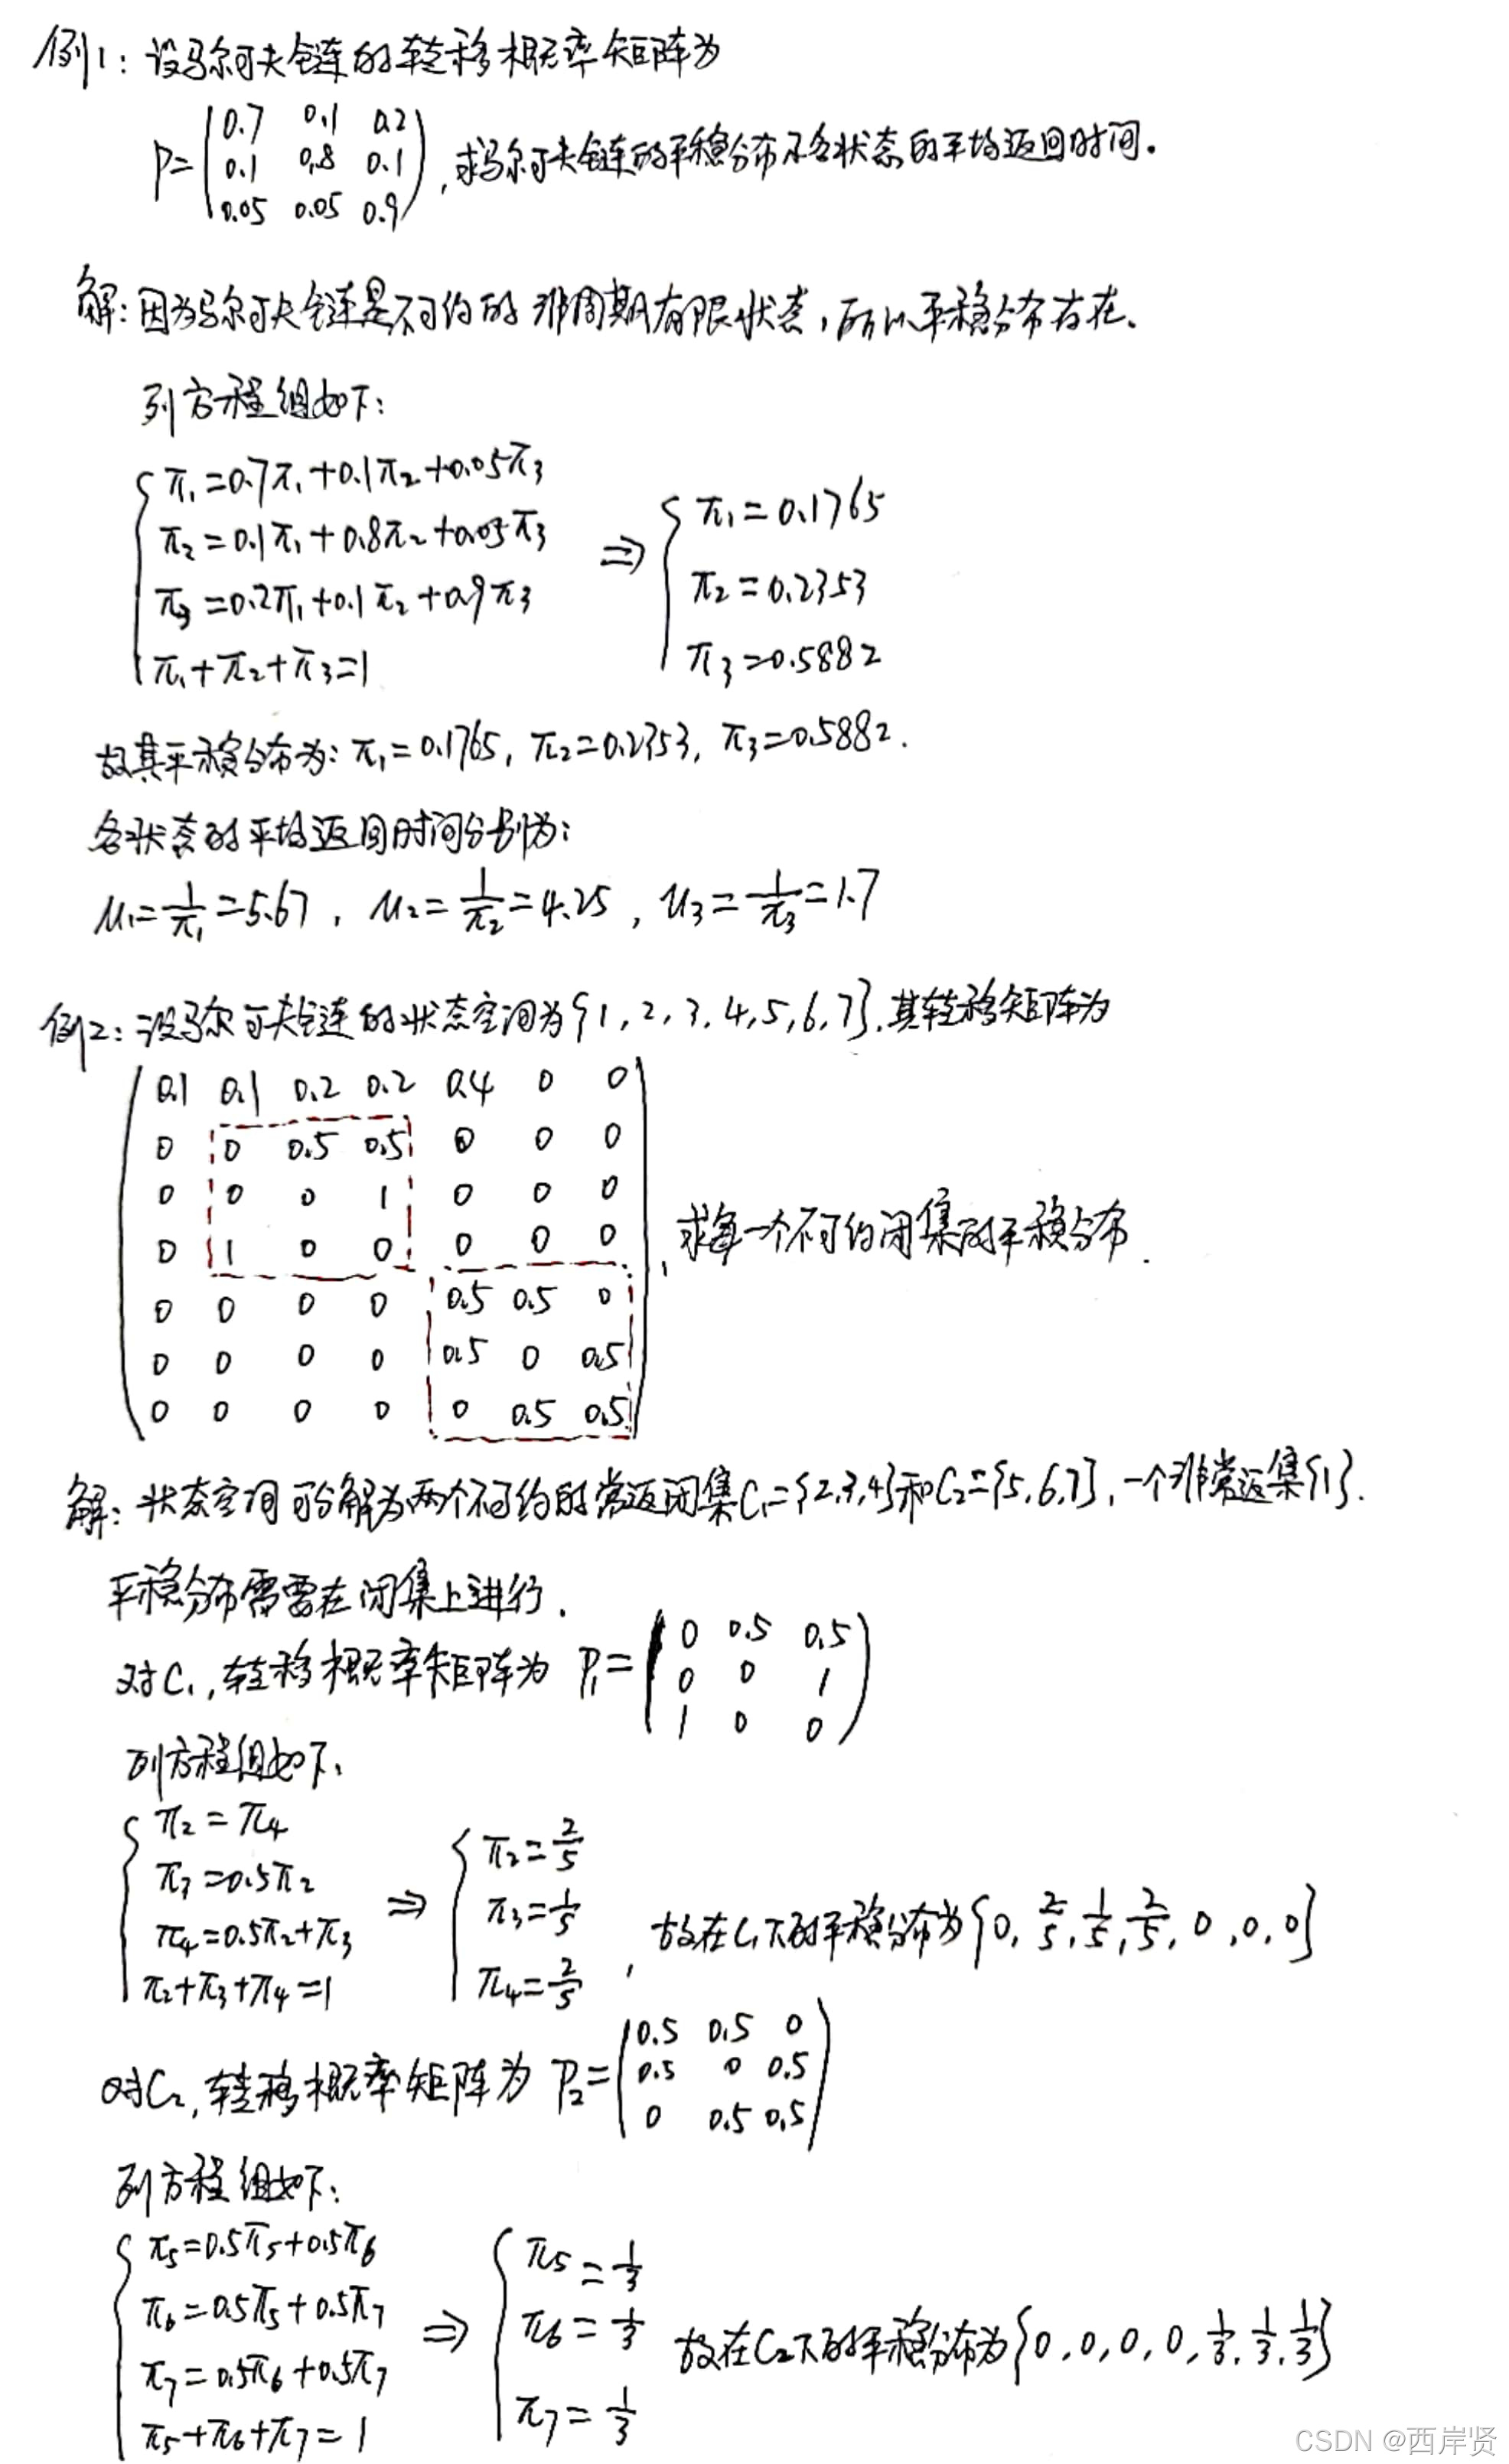 例1：设马尔可夫链的转移概率矩阵为
P=(0.7 0.1 0.2
0.1 0.8 0.1
0.05 0.05 0.9)，求马尔可夫链的平稳分布及各状态的平均返回时间。
解：因为马尔可夫链是不可约的非周期有限状态，所以平稳分布存在。
列方程组如下：
π₁=0.7π₁+0.1π₂+0.05π₃
π₂=0.1π₁+0.8π₂+0.05π₃
π₃=0.2π₁+0.1π₂+0.9π₃
π₁+π₂+π₃=1
⇒
π₁=0.1765
π₂=0.2353
π₃=0.5882
故其平稳分布为：π₁=0.1765，π₂=0.2353，π₃=0.5882.
各状态的平均返回时间分别为：
μ₁=1/π₁=5.67，μ₂=1/π₂=4.25，μ₃=1/π₃=1.7
例2：设马尔可夫链的状态空间为{1，2，3，4，5，6，7}，其转移矩阵为
0.1 0.1 0.2 0.2 0.4 0 0
0 0 0.5 0.5 0 0 0
0 0 0 1 0 0 0
0 1 0 0 0 0 0，求每一个不可约闭集的平稳分布.
0 0 0 0 0.5 0.5 0
0 0 0 0 0.5 0 0.5
0 0 0 0 0 0.5 0.5
解：状态空间可分解为两个不可约的常返闭集C₁={2,3,4}和C₂={5,6,7}，一个非常返集{1}.
平稳分布需要在闭集上进行.
对C₁，转移概率矩阵为 P₁=(0 0.5 0.5
0 0 1
1 0 0)
列方程组如下：
π₂=π₄
π₃=0.5π₂
π₄=0.5π₂+π₃
π₂+π₃+π₄=1
⇒
π₂=2/5
π₃=1/5
π₄=2/5
，故在C₁下的平稳分布为{0，2/5，1/5，2/5，0，0，0}
对C₂，转移概率矩阵为 P₂=(0.5 0.5 0
0.5 0 0.5
0 0.5 0.5)
列方程组如下：
π₅=0.5π₅+0.5π₆
π₆=0.5π₅+0.5π₇
π₇=0.5π₆+0.5π₇
π₅+π₆+π₇=1
⇒
π₅=1/3
π₆=1/3
π₇=1/3
故在C₂下的平稳分布为{0，0，0，0，1/3，1/3，1/3}
CSDN @西岸贤